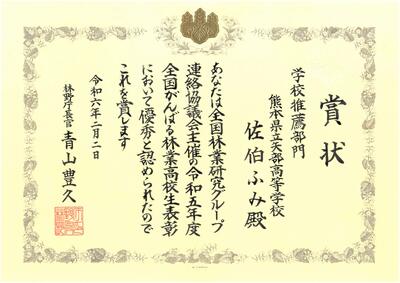 賞状
学校推薦部門
熊本県立矢部高等学校
佐伯ふみ殿
あなたは全国林業研究グループ
連絡協議会主催の令和五年度
全国がんばる林業高校生表彰
において優秀と認められたので
これを賞します
令和六年二月二日
林野庁長官 青山豊久